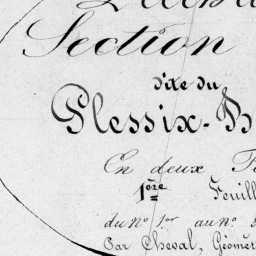 Section
dite du
Plessix-B
En deux F
1ère Feuill
du nº 1er au nº
Par Cheval, Géomèt